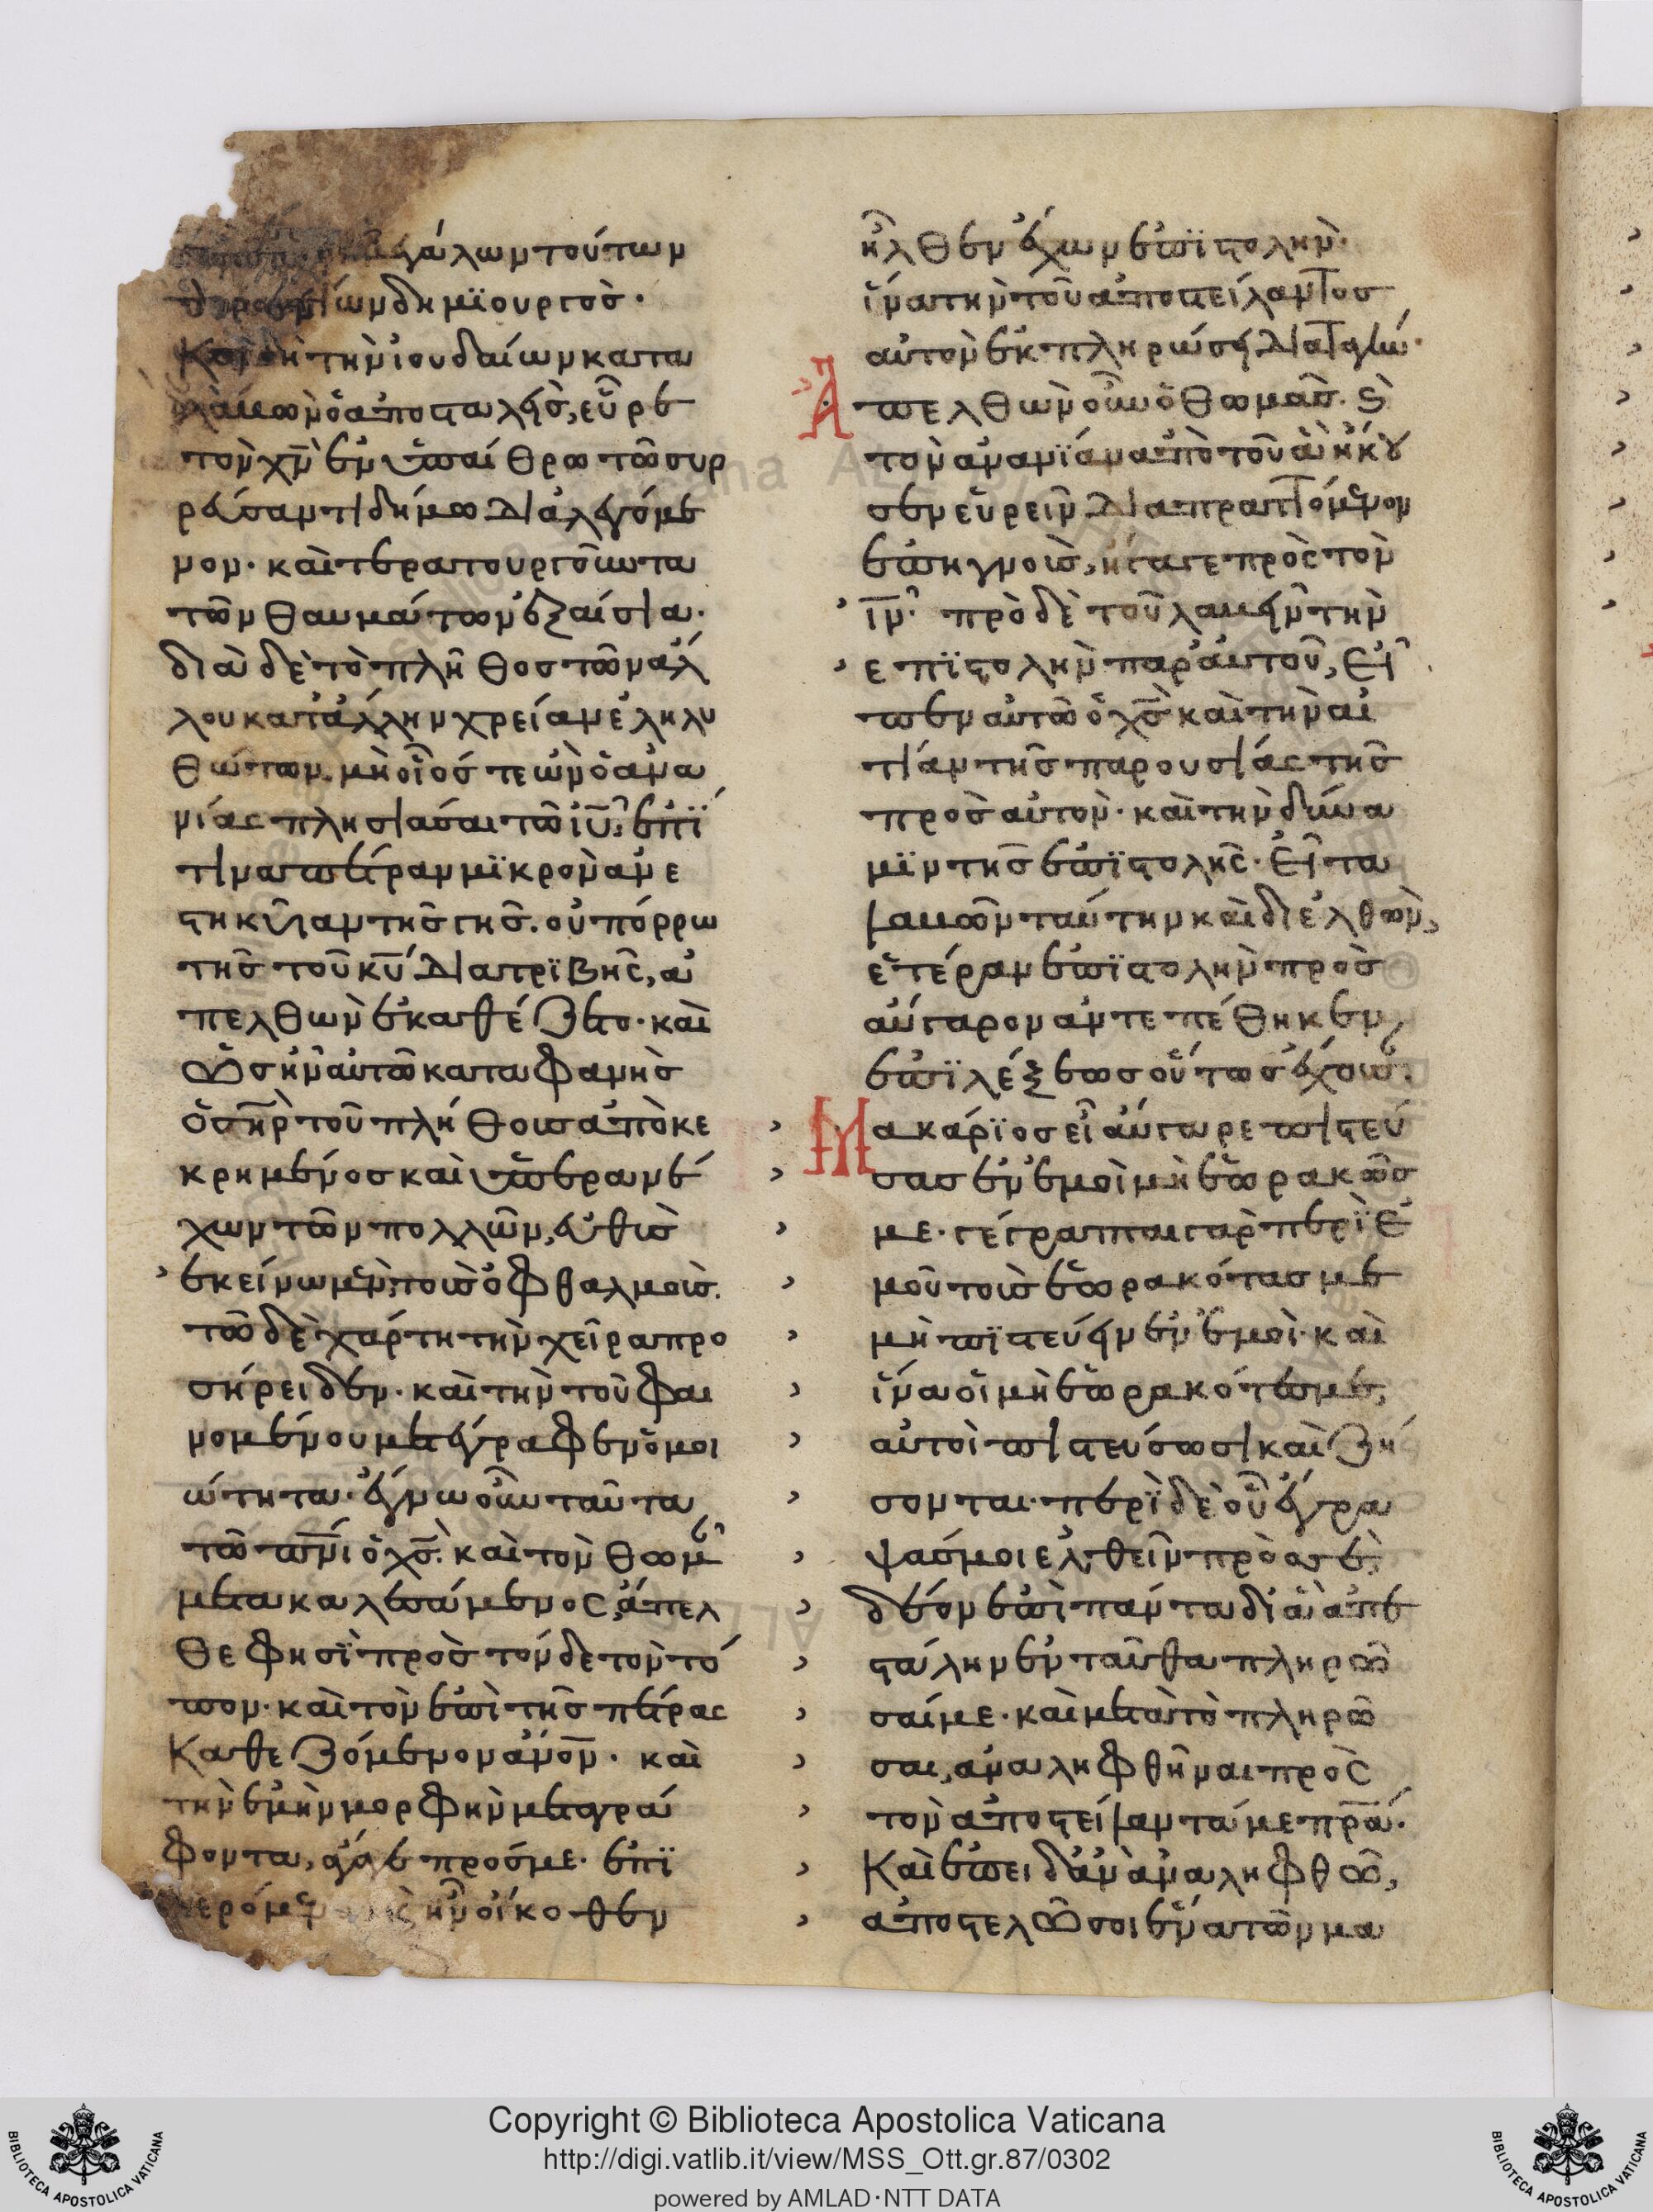 γάλων τούτων
ων δημϊουργὸς·
Καὶ δὴ τὴν ἰουδαίων κατα
λαβὼν ὁ ἀποσταλεὶς, εὗρε
τὸν χν̄ ἐν ὑπαίθρω τῶ συρ
ρεύσαντι δήμω διαλεγόμε
νον· καὶ τερατουργοῦντα
τῶν θαυμάτων ἐξαίσια·
διὰ δὲ τὸ πλῆθος τῶν ἄλ
λου κατ' ἄλλην χρείαν ἐληλυ
θώτων. μὴ οἷός τε ὢν ὁ ἀνα
νίας πλησιάσαι τῶ ιῡ, ἐπί
τινα πέτραν μϊκρὸν ἀνε
στηκυῖαν τῆς γῆς. οὐ πόρρω
τῆς τοῦ κῡ διατρϊβῆς, ἀ
πελθὼν ἐκαθέζετο· καὶ
ὡς ἦν αὐτῶ καταφανὴς
ὁ σηρ τοῦ πλήθους ἀπὸκε
κρημένος καὶ ὑπεράνέ
χων τῶν πολλῶν, εὐθὺς
ἐκείνω μὲν τοῖς ὀφθαλμοῖς.
τῶ δὲ χάρτη τὴν χεῖρα προ
σήρειδεν· καὶ τὴν τοῦ φαι
νομένου μετέγραφεν ὁμοι
ώτητα. ἔγνω οὖν ταῦτα
τῶ πνι ὁ χς̄. καὶ τὸν θωμᾶν
μετακαλεσάμενος, ἄπελ
θε φησὶ πρὸς τόνδε τὸν τό
πον· καὶ τὸν ἐπὶ τῆς πέτρας
Καθεζόμενον ἀνον̄· καὶ
τὴν ἐμὴν μορφὴν μεταγρά
φοντα, ἄγαγε πρός με· ἐπϊ
φερόμενον ἣν οἴκοθεν
ἦλθεν ἔχων ἐπϊστολὴν·
ἵνα τὴν τοῦ ἀποστείλαντος
αὐτὸν ἐκπληρώσῃ διαταγήν·
Ἀπελθὼν οὖν ὁ θωμᾶς. καὶ
τὸν ἀνανϊάν ἀπὸ τοῦ ὃ ἀκήκο
εν εὑρεῖν διαπραττόμενον
ἐπιγνοὺς, ἤγαγε πρὸς τὸν
ιν̄· πρὸ δὲ τοῦ λαβεῖν τὴν
ἐπϊστολὴν παρ' αὐτοῦ, εἶ
πεν αὐτῶ ὁ χς̄ καὶ τὴν αἰ
τίαν τῆς παρουσίας τῆς
πρὸς αὐτὸν· καὶ τὴν δύνα
μϊν τῆς ἐπϊστολῆς· εἶτα
λαβὼν ταύτην καὶ διελθὼν,
ἑτέραν ἐπϊστολὴν πρὸς
αὔγαρον ἀντεπέθηκεν,
ἐπϊ λέξεως οὕτως ἔχουσαν·
Μακάρϊος εἶ αὔγαρε πιστεύ
σας ἐν ἐμοὶ μὴ ἑωρακώς
με· γέγραπται γὰρ περὶ ἐ
μοῦ τοὺς ἑωρακότας με
μὴ πϊστεύειν ἐν ἐμοὶ· καὶ
ἵνα οἱ μὴ ἑωρακότες με,
αὐτοὶ πιστεύσωσι καὶ ζή
σονται· περὶ δὲ οὗ ἔγρα
ψάς μοι ἐλθεῖν πρὸς σὲ,
δέον ἐστὶ πάντα δι' ἃ ἀπε
στάλην ἐνταῦθα πληρῶ
σαί με· καὶ μετὰ τὸ πληρῶ
σαι, ἀναληφθῆναι πρὸς
τὸν ἀποστείλαντά με πρ̄α·
Καὶ ἐπειδὰν ἀναληφθῶ,
ἀποστελῶ σοι ἕνα τῶν μα
Copyright © Biblioteca Apostolica Vaticana
http://digi.vatlib.it/view/MSS_Ott.gr.87/0302
powered by AMLAD·NTT DATA
BIBLIOTECA APOSTOLICA VATICANA
BIBLIOTECA APOSTOLICA VATICANA